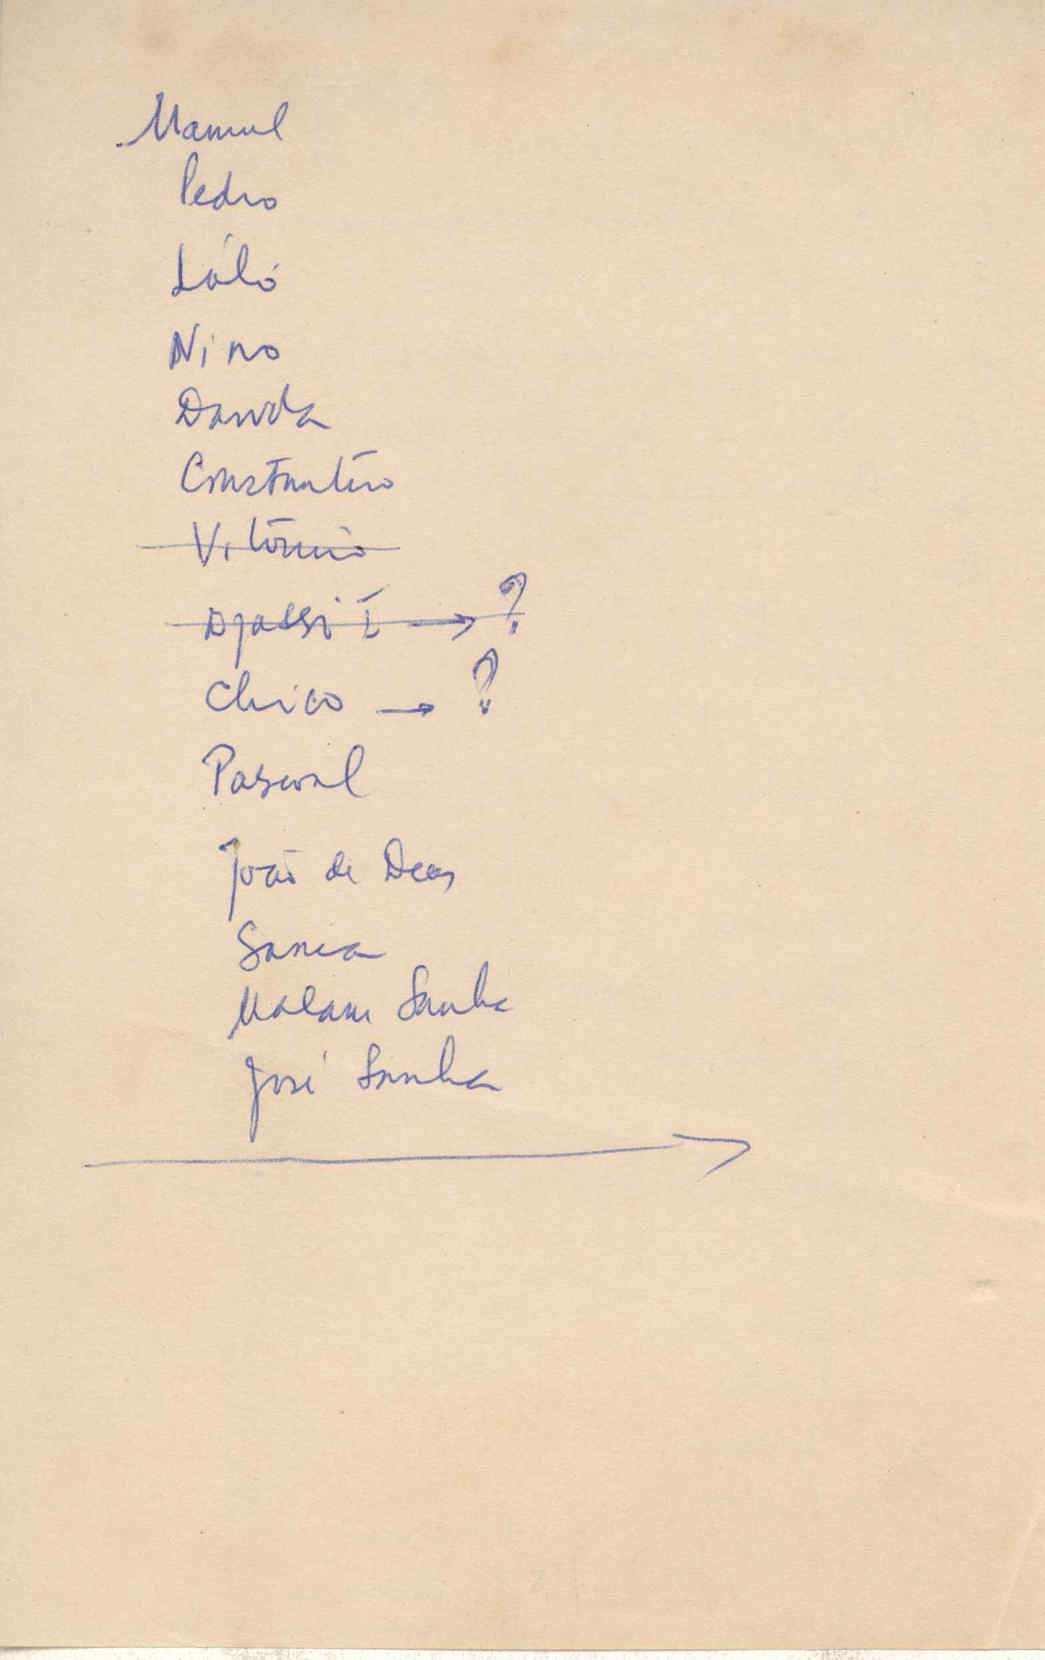 Manuel
Pedro
Láló
Nino
Danda
Constantino
Vitório
Djassi I → ?
Chico → ?
Pascoal
João de Deus
Sanca
Malam Sanha
José Sanha